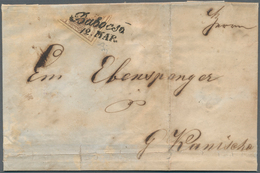 Babocsa
12. MAR.
Franco
Em Ebenspanger
p
G Kanischa